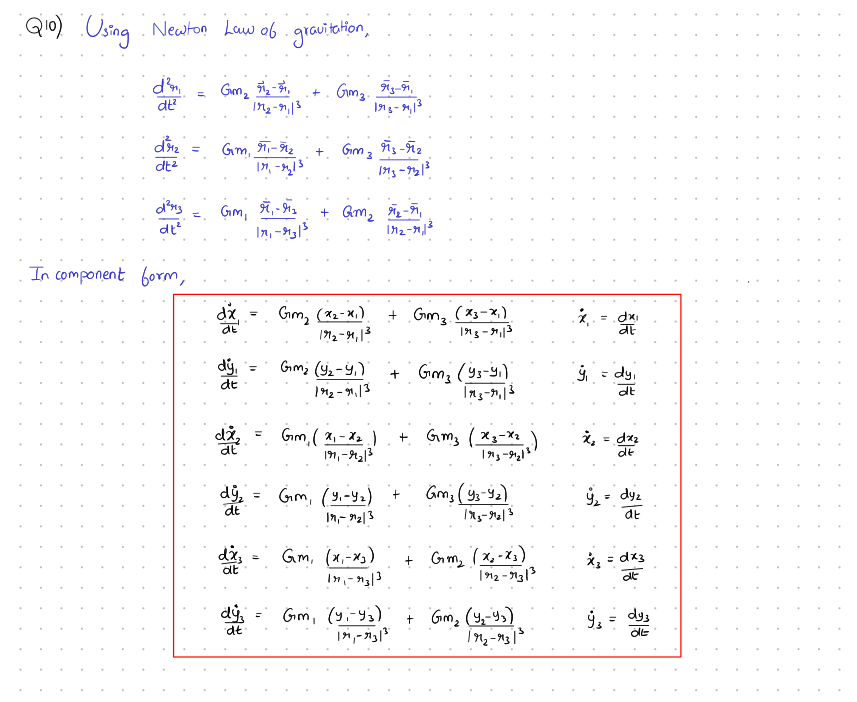 Q10) Using Newton Law of gravitation,
d²r₁/dt² = Gm₂ (r̄₂-r̄₁)/|r₂-r₁|³ + Gm₃ (r̄₃-r̄₁)/|r₃-r₁|³
d²r₂/dt² = Gm₁ (r̄₁-r̄₂)/|r₁-r₂|³ + Gm₃ (r̄₃-r̄₂)/|r₃-r₂|³
d²r₃/dt² = Gm₁ (r̄₁-r̄₃)/|r₁-r₃|³ + Gm₂ (r̄₂-r̄₁)/|r₂-r₁|³
In component form,
dẋ₁/dt = Gm₂ (x₂-x₁)/|r₂-r₁|³ + Gm₃ (x₃-x₁)/|r₃-r₁|³ ẋ₁ = dx₁/dt
dẏ₁/dt = Gm₂ (y₂-y₁)/|r₂-r₁|³ + Gm₃ (y₃-y₁)/|r₃-r₁|³ ẏ₁ = dy₁/dt
dẋ₂/dt = Gm₁ ((x₁-x₂)/|r₁-r₂|³) + Gm₃ ((x₃-x₂)/|r₃-r₂|³) ẋ₂ = dx₂/dt
dẏ₂/dt = Gm₁ (y₁-y₂)/|r₁-r₂|³ + Gm₃ (y₃-y₂)/|r₃-r₂|³ ẏ₂ = dy₂/dt
dẋ₃/dt = Gm₁ (x₁-x₃)/|r₁-r₃|³ + Gm₂ (x₂-x₃)/|r₂-r₃|³ ẋ₃ = dx₃/dt
dẏ₃/dt = Gm₁ (y₁-y₃)/|r₁-r₃|³ + Gm₂ (y₂-y₃)/|r₂-r₃|³ ẏ₃ = dy₃/dt